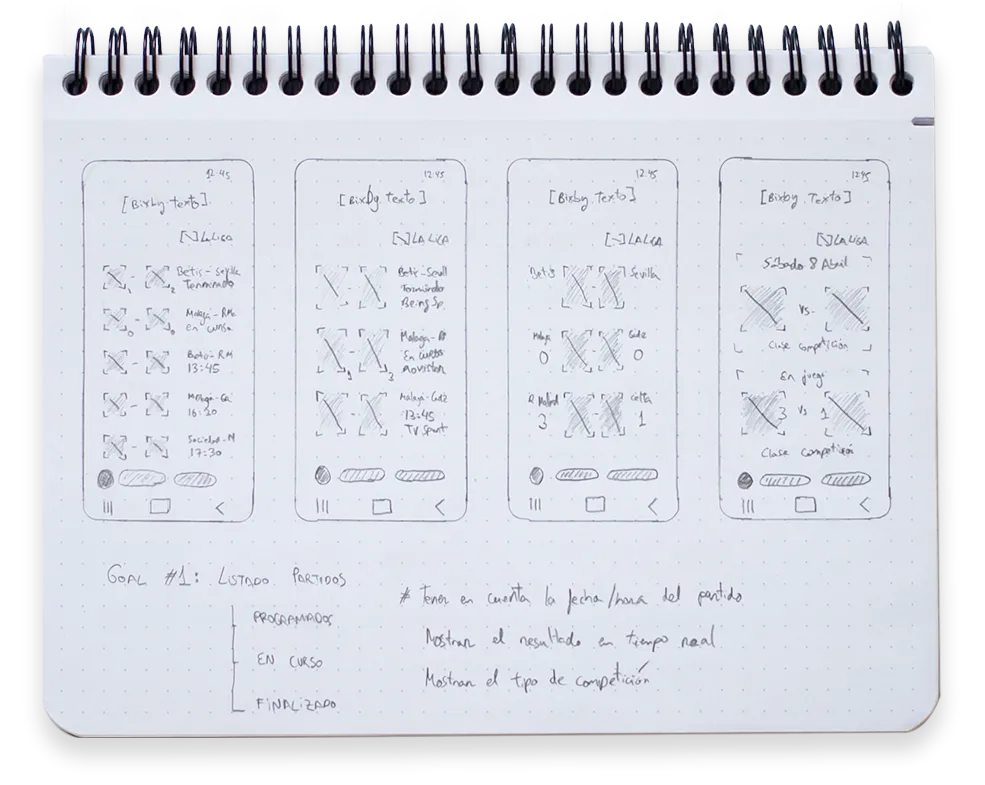 12:45
[Bixby Texto]
LALIGA
Betis - Sevilla
Terminado
1 2
Malaga - RM
en curso
0 0
Betis - RM
13:45
Malaga - Ca
16:30
Sociedad - M
17:30
12:45
[Bixby Texto]
LALIGA
Betis - Sevill
Terminado
Being Sp.
Malaga - R
En curso
Movistar
1 3
Malaga - Cadz
13:45
TV Sport
12:45
[Bixby Texto]
LALIGA
Betis - Sevilla
Malaga - Cadiz
0 0
R Madrid - Celta
3 1
12:45
[Bixby Texto]
LALIGA
Sábado 8 Abril
vs.
Clase competición
En juego
3 vs 1
Clase competición
GOAL #1: LISTADO PARTIDOS
PROGRAMADOS
EN CURSO
FINALIZADO
* Tener en cuenta la fecha/hora del partido
Mostrar el resultado en tiempo real
Mostrar el tipo de competición